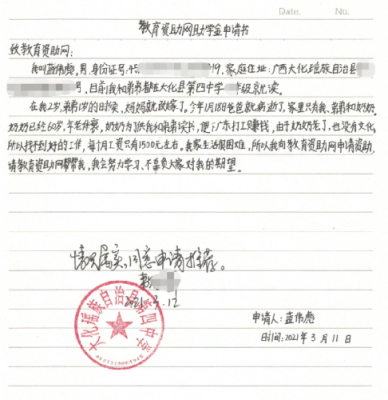 Date. No.
教育资助网助学金申请书
致教育资助网：
我叫蓝伟彪，男，身份证号：45 19，家庭住址：广西大化瑶族自治县
，目前我和弟弟都在大化县第四中学 年级就读。
在我2岁，弟弟1岁的时候，妈妈就改嫁了。今年1月18日爸爸就病逝了，家里只有我、弟弟和奶奶。
奶奶已经60岁，年老体衰，奶奶为了供我和弟弟读书，便到广东打工赚钱，由于奶奶老了，也没有文化，
所以找不到好的工作，每个月工资只有1500元左右。我家生活很困难，所以我向教育资助网申请资助，
请教育资助网帮帮我，我会努力学习，不辜负大家对我的期望。
情况属实，同意申请推荐。
2021.3.12
大化瑶族自治县第四中学
申请人：蓝伟彪
日期：2021年3月11日